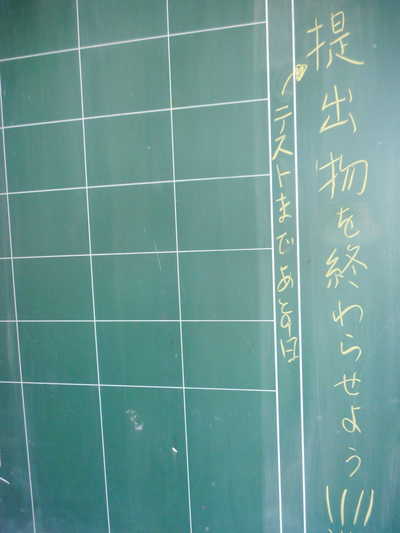 提出物を終わらせよう!!!!
テストまであと日